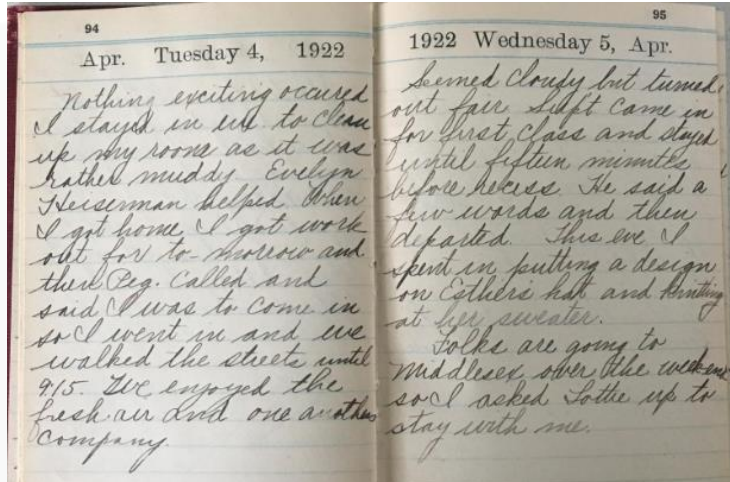 94
Apr. Tuesday 4, 1922
Nothing exciting occured
I stayed in eve to clean
up my room as it was
rather muddy Evelyn
Heiserman helped. When
I got home I got work
out for to-morrow and
then Peg. called and
said I was to come in
so I went in and we
walked the streets until
9:15. We enjoyed the
fresh air and one anothers
company.
95
1922 Wednesday 5, Apr.
Seemed cloudy but turned
out fair Supt came in
for first class and stayed
until fifteen minutes
before recess. He said a
few words and then
departed. This eve I
spent in putting a design
on Esther's hat and knitting
at her sweater.
Folks are going to
Middlesex over the weekend
so I asked Lothe up to
stay with me.